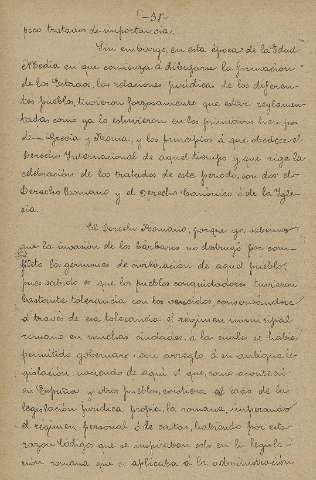 pocos tratados de importancia.
Sin embargo, en esta época de la Edad
Media en que comienza á dibujarse la formación
de los Estados, las relaciones jurídicas de los diferen-
tes pueblos, tuvieron forzosamente que estar reglamen-
tadas como ya lo estuvieron en los primitivos tiempos
de Grecia y Roma; y los principios á que obedece el
Derecho Internacional de aquel tiempo y que rige la
celebración de los tratados de este período, son dos: el
Derecho Romano y el Derecho Canónico ó de la Igle-
sia.
El Derecho Romano, porque ya sabemos
que la invasión de los bárbaros no destruyó por com-
pleto los gérmenes de civilización de aquel pueblo,
pues sabido es que los pueblos conquistadores tuvieron
bastante tolerancia con los vencidos, conservándose
á través de esa tolerancia el régimen municipal
romano en muchas ciudades, á las cuales se había
permitido gobernarse con arreglo á su antigua le-
gislación, naciendo de aquí el que, como aconteció
en España y otros pueblos, coexistiera al lado de la
legislación jurídica propia, la romana, imperando
el régimen personal ó de castas, habiendo por esta
razón Códigos que se inspiraban solo en la legisla-
ción romana que se aplicaba á la administración